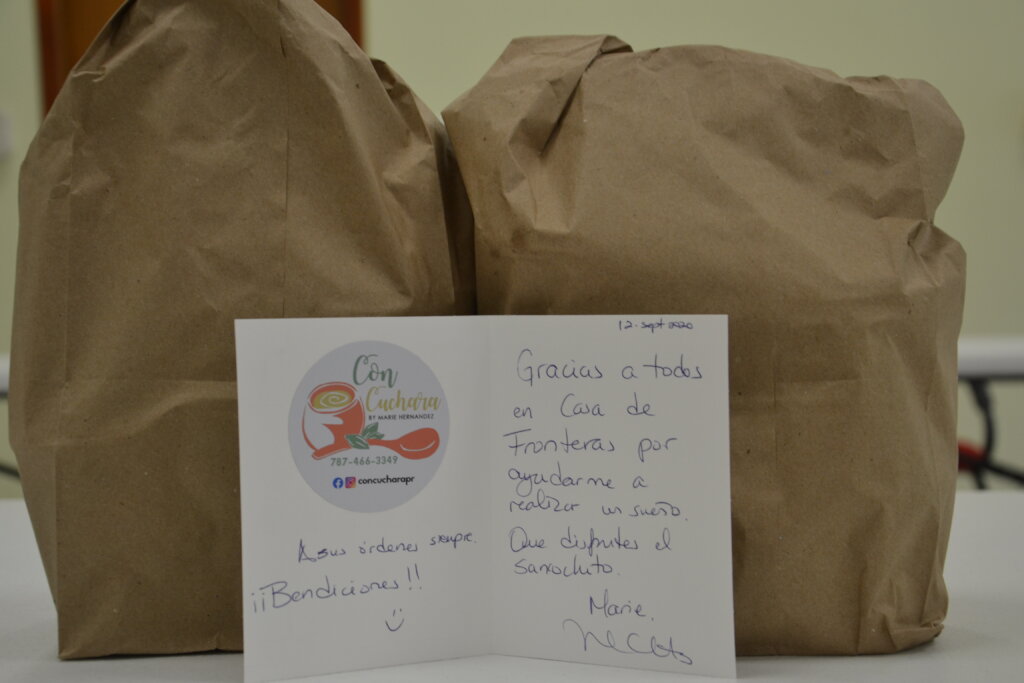 Con
Cuchara
BY MARIE HERNANDEZ
787-466-3349
concucharapr
A sus órdenes siempre.
¡¡Bendiciones!!
12-sept 2020
Gracias a todos
en Casa de
Fronteras por
ayudarme a
realizar un sueño.
Que disfrutes el
sancochito.
Marie.